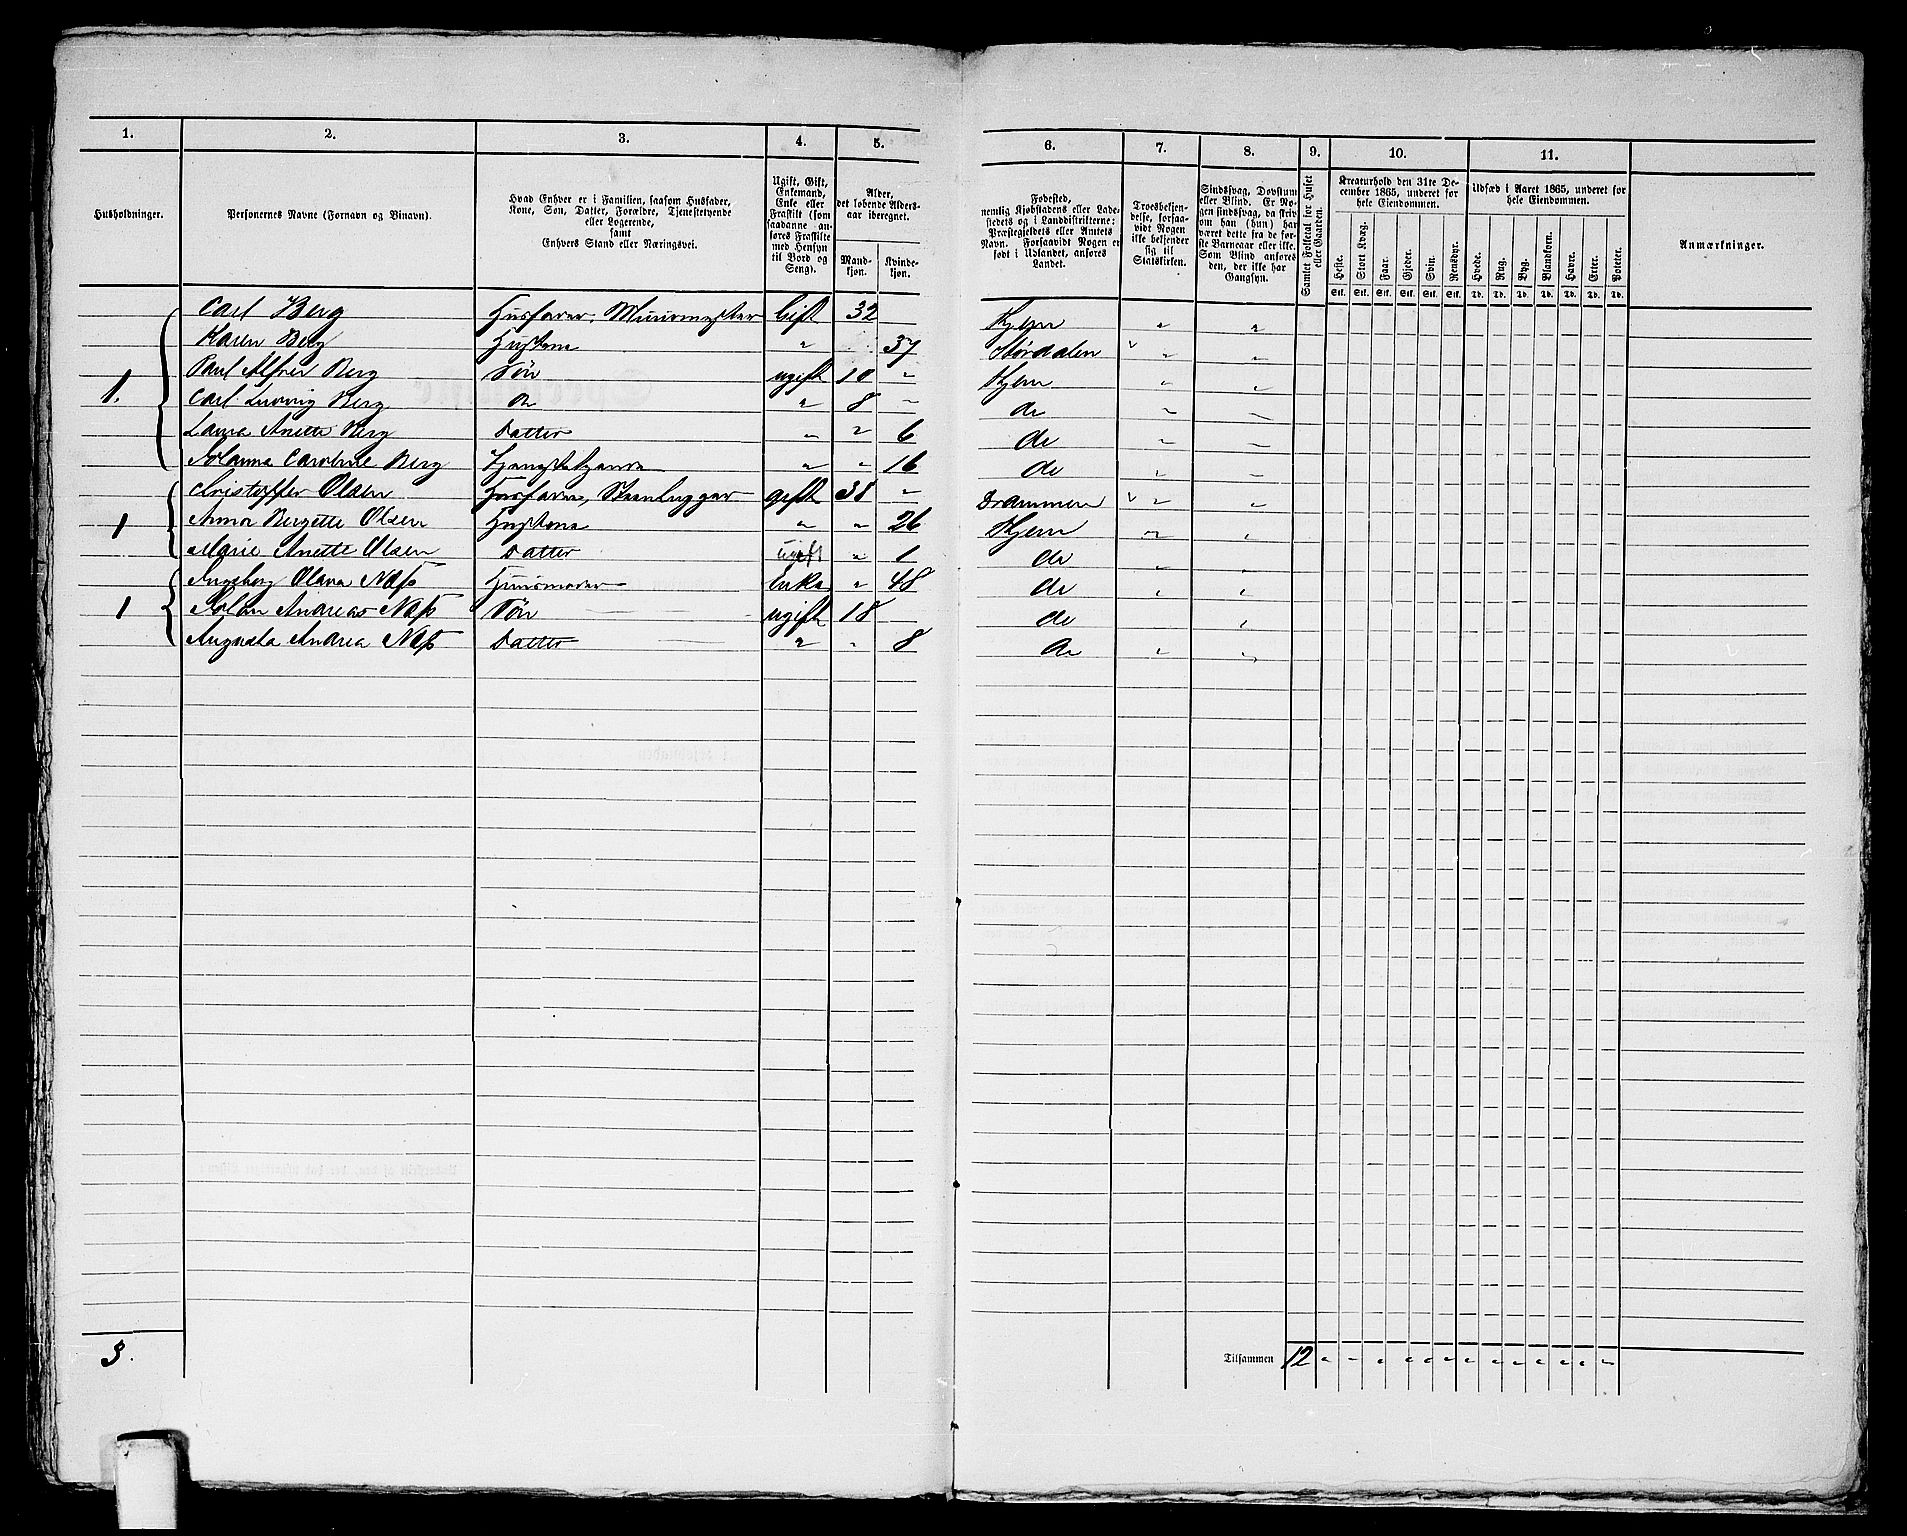 1. 2. 3. 4. 5. 6. 7. 8. 9. 10. 11.
Husholdninger. Personernes Navne (Fornavn og Binavn). Hvad Enhver er i Familien, saasom Husfader, Kone, Søn, Datter, Forældre, Tjenestetyende eller Logerende, samt Enhvers Stand eller Næringsvei. Ugift, Gift, Enkemand, Enke eller Fraskilt (som saadanne anføres Fraskilte med Hensyn til Bord og Seng). Alder, det løbende Aldersaar iberegnet. Mandkjøn. Kvindekjøn. Fødested, nemlig Kjøbstadens eller Ladestedets og i Landdistrikterne: Præstegjeldets eller Amtets Navn. Forsaavidt Nogen er født i Udlandet, anføres Landet. Troesbekjendelse, forsaavidt Nogen ikke bekjender sig til Statskirken. Sindssvag, Døvstum eller Blind. Er Nogen sindssvag, da skrives om han (hun) har været dette fra de første Barneaar eller ikke. Som Blind anføres den, der ikke har Gangsyn. Samlet Folketal for Huset eller Gaarden. Kreaturhold den 31te December 1865, underet for hele Eiendommen. Heste. Stort Kvæg. Faar. Gjeder. Svin. Rensdyr. Udsæd i Aaret 1865, underet for hele Eiendommen. Hvede. Rug. Byg. Blandkorn. Havre. Erter. Poteter. Anmærkninger.
Stk. Stk. Stk. Stk. Stk. Stk. Td. Td. Td. Td. Td. Td. Td.
Carl Berg Husfader, Muurmester Gift 32 Hjem " "
Karen Berg Hustrue " 37 Størdalen v " "
1. Paul Alfred Berg Søn ugift 10 " Hjem " "
Carl Ludvig Berg do " 8 " do " "
Laura Anette Berg Datter " " 6 do " "
Johanna Caroline Berg Tjenestetyende " " 16 do " "
Cristoffer Olsen Husfader, Steenhugger gift 38 " Drammen v " "
1 Anna Bergette Olsen Hustrue " " 26 Hjem " "
Marie Anette Olsen Datter ugift " 1 do " "
Ingeborg Olava Næss Huusmoder Enke " 48 do " "
1 Johan Andreas Næss Søn ugift 18 do "
Augusta Andrea Næss Datter " " 8 do " "
3. Tilsammen 12 " " " " " " " " " " " " "